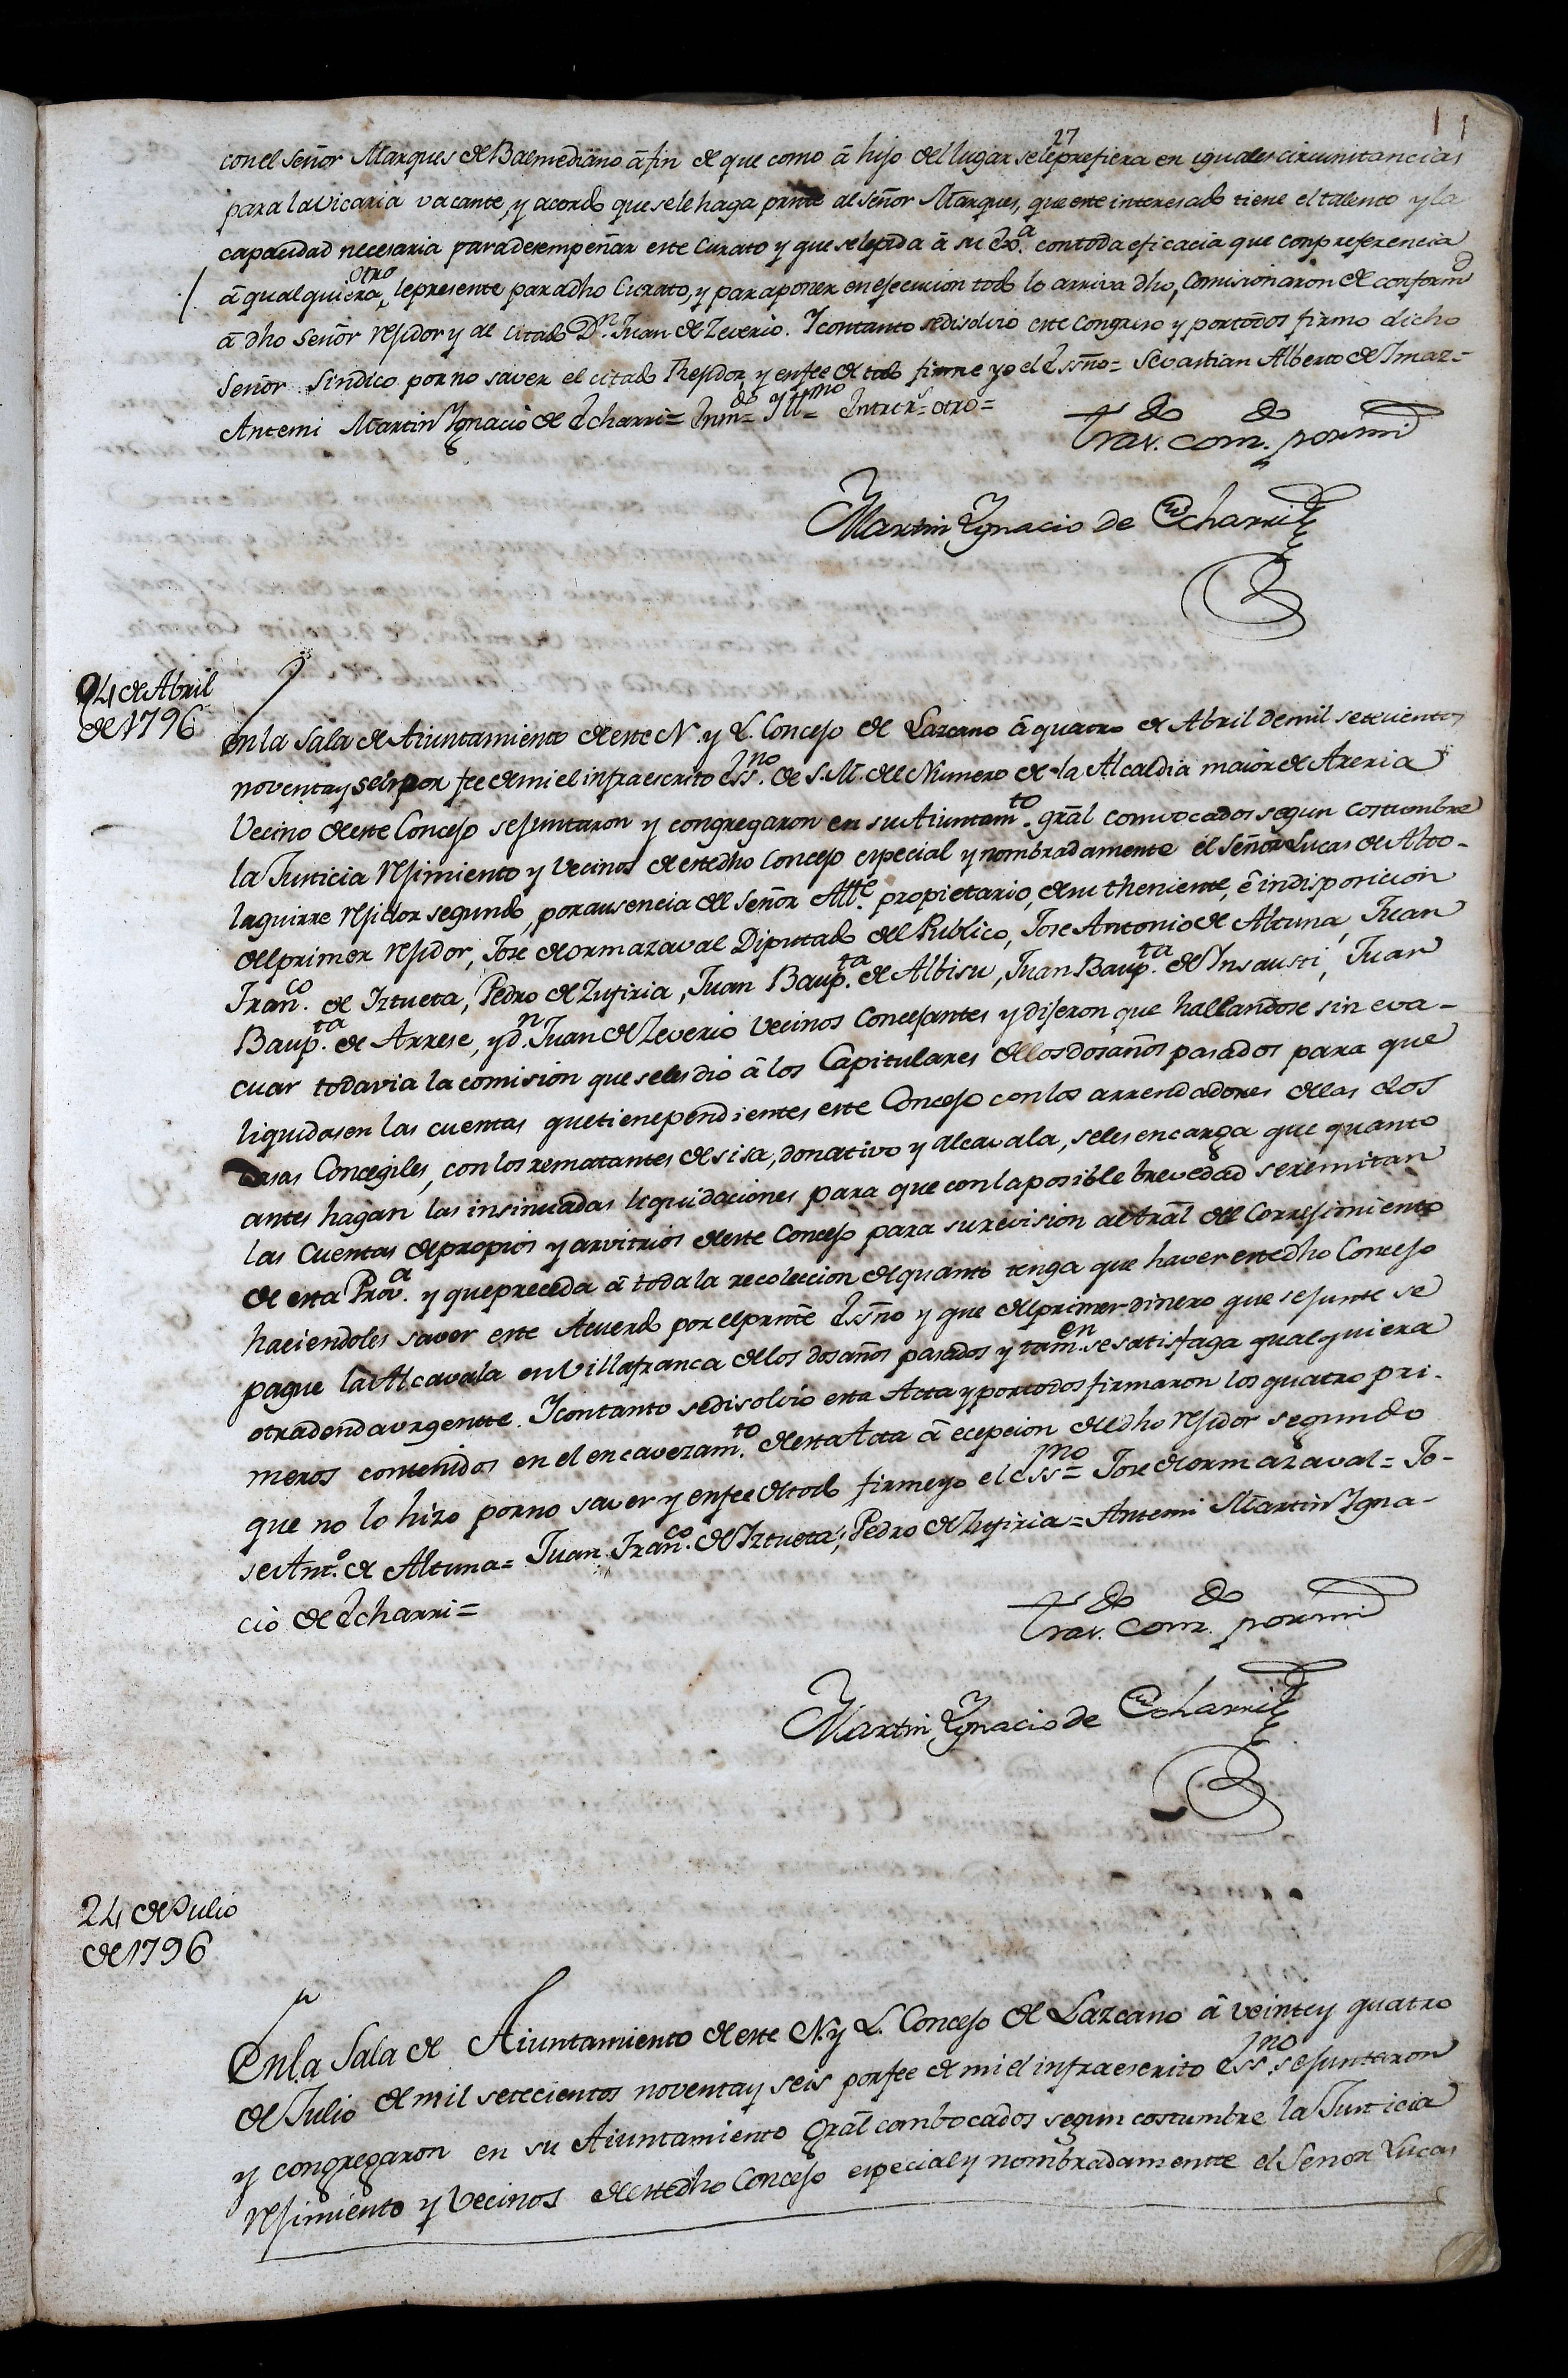 11
27
con el señor Marques de Balmediano â fin de que como â hijo del lugar se le prefiera en iguales circunstancias
para la vicaria vacante, y acordo que se le haga prnte al señor Marques, que este interesado tiene el talento y la
capacidad necesaria para desempeñar este Curato y que se le pida â su Exª. con toda eficacia que con preferencia
â qualquiera otro, le presente para dho Curato, y para poner en ejecucion todo lo arriva dho, Comisionaron de conformd
â dho Señor rejidor y al citado Dn. Juan de Zeverio. Y con tanto se disolvio este Congreso y por todos firmo dicho
Señor Sindico por no saver el citado Rejidor, y en fee de todo firme yo el Essño = Sevastian Alberto de Imaz =
Ante mi Martin Ygnacio de Echarri = Enmdo = Yllmo = Entrerrs otro =
Travdo. comdo. por mi
Martin Ygnacio de Echarri
04 de Abril
de 1796
En la Sala de Aiuntamiento de este N. y L. Concejo de Lazcano â quatro de Abril de mil setecientos
noventa y seis por fee de mi el infraescrito Essno. de S. M. del Numero de la Alcaldia maior de Areria
Vecino de este Concejo se juntaron y congregaron en su Aiuntamto. grâl convocados segun costumbre
la Justicia rejimiento y Vecinos de este dho Concejo especial y nombradamente el Señor Lucas de Alto-
laguirre rejidor segundo, por ausencia del Señor Allte. propietario, de su theniente, ê indisposicion
del primer rejidor, Jose de Ormazaval Diputado del Publico, Jose Antonio de Altuna, Juan
Franco. de Iztueta, Pedro de Zufiria, Juan Baupta. de Albisu, Juan Baupta. de Ynsausti, Juan
Baupta. de Arrese, y dn. Juan de Zeverio Vecinos Concejantes y dijeron que hallandose sin eva-
cuar todavia la comision que se les dio â los Capitulares de los dos años pasados para que
liquidasen las cuentas que tiene pendientes este Concejo con los arrendadores de las dos
casas Concegiles, con los rematantes de sisa, donativo y alcavala, se les encarga que quanto
antes hagan las insinuadas liquidaciones para que con la posible brevedad se remitan
las Cuentas de propios y arvitrios de este Concejo para su revision al trâl del Correjimiento
de esta Prova. y que preceda â toda la recoleccion de quanto tenga que haver este dho Concejo
haciendoles saver este Acuerdo por el prnte Essño y que del primer dinero que se junte se
pague la Alcavala en Villafranca de los dos años pasados y tamen. se satisfaga qualquiera
otra deuda urgentte. Y con tanto se disolvio esta Acta y por todos firmaron los quatro pri-
meros contenidos en el encavezamto. de esta Acta â ecepcion del dho rejidor segundo
que no lo hizo por no saver y en fee de todo firme yo el Essno = Jose de Ormazaval = Jo-
se Anto. de Altuna = Juan Franco. de Iztueta; Pedro de Zufiria = Ante mi Martin Ygna-
cio de Echarri =
Travdo. comdo. por mi
Martin Ygnacio de Echarri
24 de Julio
de 1796
En la Sala de Aiuntamiento de este N. y L. Concejo de Lazcano â veinte y quatro
de Julio de mil setecientos noventa y seis por fee de mi el infraescrito Essno. se juntaron
y congregaron en su Aiuntamiento Grâl combocados segun costumbre la Justicia
rejimiento y Vecinos de este dho Concejo especial y nombradamentte el Señor Lucas